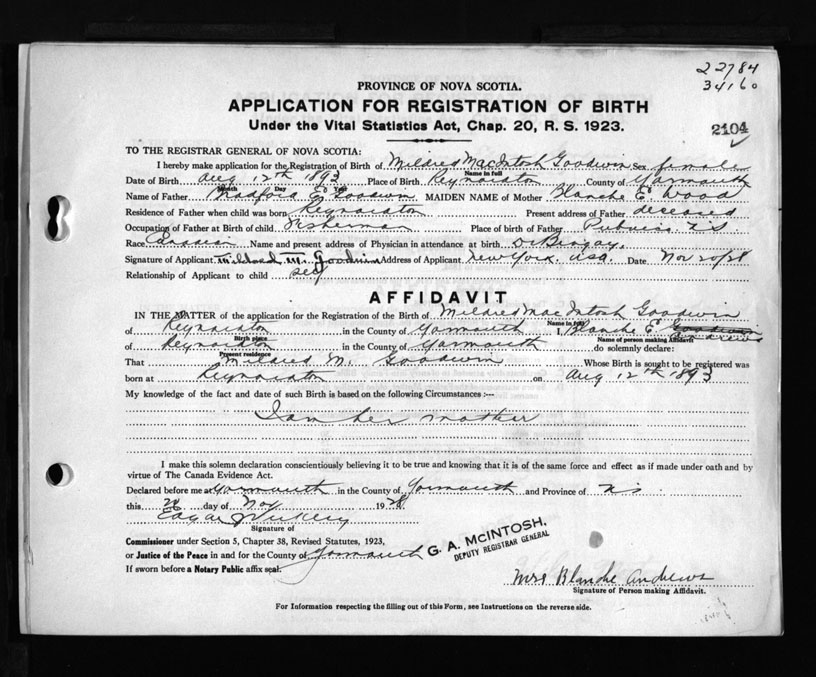 22784
34160
PROVINCE OF NOVA SCOTIA.
APPLICATION FOR REGISTRATION OF BIRTH
Under the Vital Statistics Act, Chap. 20, R. S. 1923.
2104
TO THE REGISTRAR GENERAL OF NOVA SCOTIA:
I hereby make application for the Registration of Birth of Mildred MacIntosh Goodwin Sex female
Name in full
Date of Birth Aug 12th 1893 Place of Birth Reynardton County of Yarmouth
Month Day Year
Name of Father Bradford E. Goodwin MAIDEN NAME of Mother Blanche E Wood
Residence of Father when child was born Reynardton Present address of Father deceased
Occupation of Father at Birth of child Fisherman Place of birth of Father Pubnico NS
Race Canadian Name and present address of Physician in attendance at birth
Signature of Applicant Mildred M. Goodwin Address of Applicant New York, USA. Date Nov 20/28
Relationship of Applicant to child self
AFFIDAVIT
IN THE MATTER of the application for the Registration of the Birth of Mildred MacIntosh Goodwin
Name in full
of Reynardton in the County of Yarmouth I, Blanche E. Goodwin Andrews
Birth place
Name of person making Affidavit
of Reynardton in the County of Yarmouth do solemnly declare:
Present residence
That Mildred M. Goodwin Whose Birth is sought to be registered was
born at Reynardton on Aug 12th 1893
My knowledge of the fact and date of such Birth is based on the following Circumstances :—
I am her mother
I make this solemn declaration conscientiously believing it to be true and knowing that it is of the same force and effect as if made under oath and by
virtue of The Canada Evidence Act.
Declared before me at Yarmouth in the County of Yarmouth and Province of NS
this 20 day of Nov 1928
Edgar
Signature of
Commissioner under Section 5, Chapter 38, Revised Statutes, 1923,
or Justice of the Peace in and for the County of Yarmouth
G. A. McINTOSH,
DEPUTY REGISTRAR GENERAL
If sworn before a Notary Public affix seal.
Mrs Blanche Andrews
Signature of Person making Affidavit.
For Information respecting the filling out of this Form, see Instructions on the reverse side.